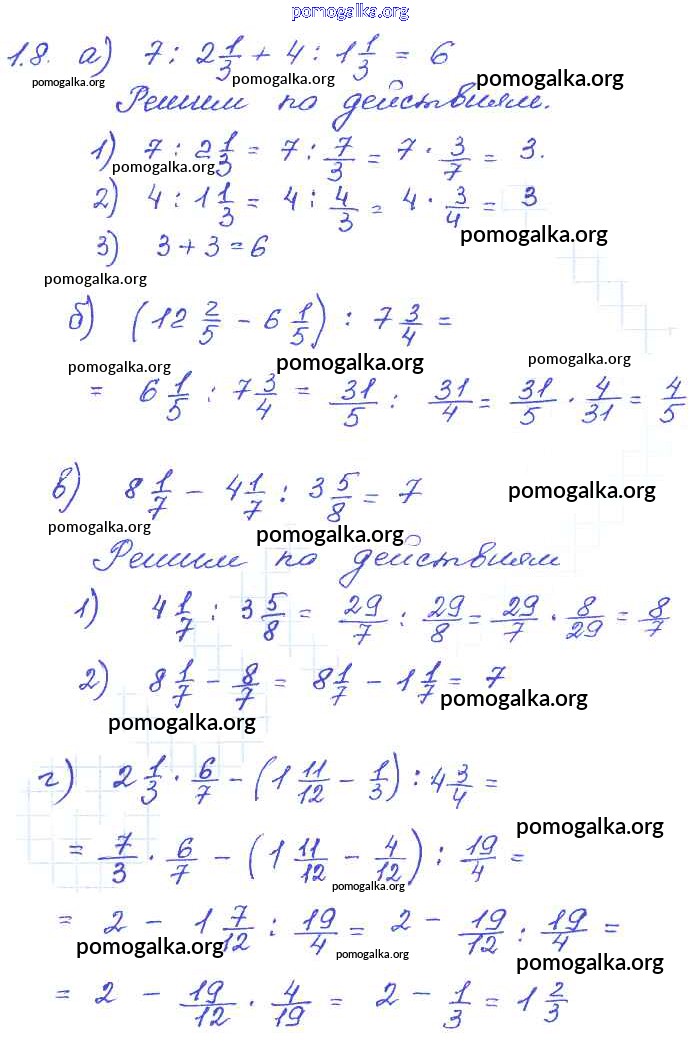 pomogalka.org
1.8. а) 7 : 2 1/3 + 4 : 1 1/3 = 6
pomogalka.org pomogalka.org pomogalka.org
Решим по действиям.
1) 7 : 2 1/3 = 7 : 7/3 = 7 · 3/7 = 3.
pomogalka.org
2) 4 : 1 1/3 = 4 : 4/3 = 4 · 3/4 = 3
pomogalka.org
3) 3 + 3 = 6
pomogalka.org
б) (12 2/5 - 6 1/5) : 7 3/4 =
pomogalka.org pomogalka.org pomogalka.org
= 6 1/5 : 7 3/4 = 31/5 : 31/4 = 31/5 · 4/31 = 4/5
в) 8 1/7 - 4 1/7 : 3 5/8 = 7
pomogalka.org
pomogalka.org pomogalka.org
Решим по действиям
1) 4 1/7 : 3 5/8 = 29/7 : 29/8 = 29/7 · 8/29 = 8/7
2) 8 1/7 - 8/7 = 8 1/7 - 1 1/7 = 7
pomogalka.org
pomogalka.org
г) 2 1/3 · 6/7 - (1 11/12 - 1/3) : 4 3/4 =
pomogalka.org
= 7/3 · 6/7 - (1 11/12 - 4/12) : 19/4 =
pomogalka.org
= 2 - 1 7/12 : 19/4 = 2 - 19/12 : 19/4 =
pomogalka.org pomogalka.org pomogalka.org
= 2 - 19/12 · 4/19 = 2 - 1/3 = 1 2/3